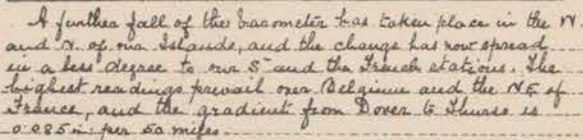 A further fall of the barometer has taken place in the W.
and N. of our Islands, and the change has now spread
in a less degree to our S and the French stations. The
highest readings prevail over Belgium and the NE of
France, and the gradient from Dover to Thurso is
0.085 in: per 50 miles.